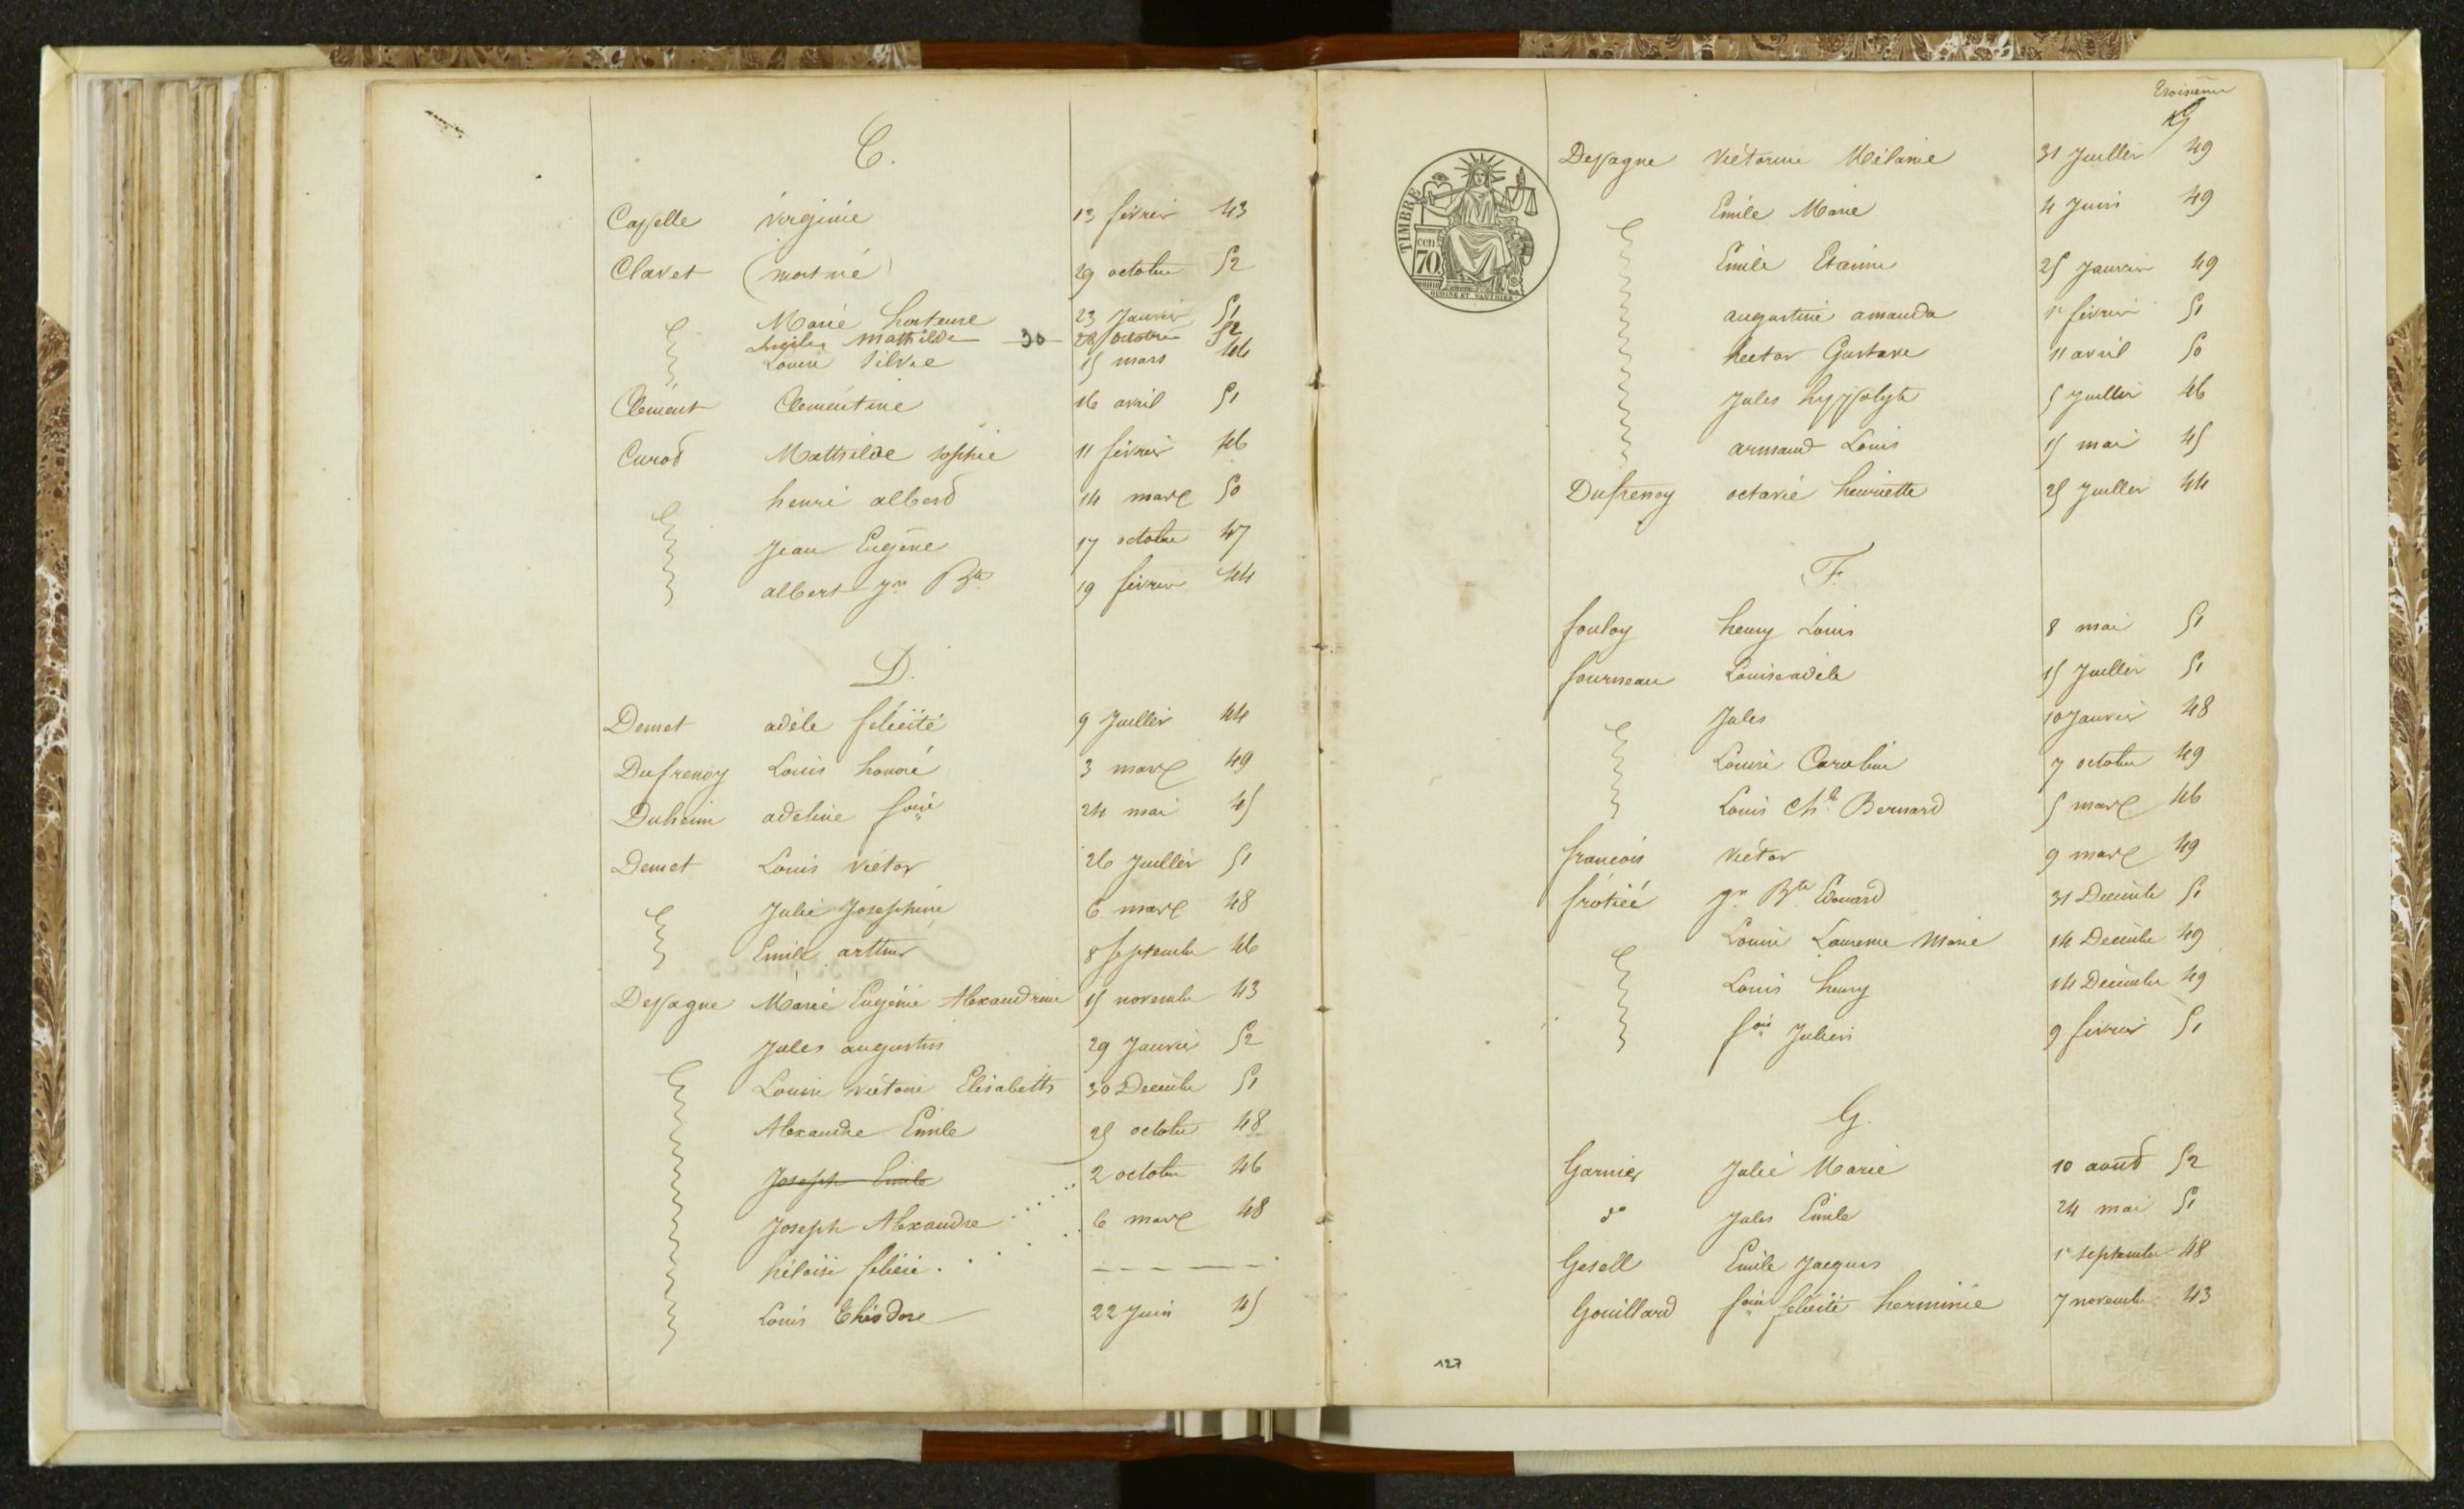 C.
Capelle Virginie 13 février 43
Clavet (mort né) 29 octobre 52
Marie hortense 23 Janvier 51
Mathilde 30 28 octobre 52
Louise Silvie 15 mars 46
Clément Clementine 16 avril 51
Curod Mathilde Sophie 11 février 46
henri alberd 14 mars 50
Jean Eugène 17 octobre 47
albert Jn Bte 19 février 44
D.
Demet adèle félicité 9 Juillet 44
Dufrenoy Louis honoré 3 mars 49
Duheim adeline foise 24 mai 45
Demet Louis victor 26 Juillet 51
Julie Josephine 6 mars 48
Emile arthur 8 septembre 46
Depagne Marie Eugénie Alexandrine 15 novembre 43
Jules augustin 29 Janvier 52
Louise victoire Elisabeth 30 Decembre 51
Alexandre Emile 25 octobre 48
Joseph Emile 2 octobre 46
Joseph Alexandre 6 mars 48
héloise félicie
Louis Théodore 22 Juin 45
troisième
Depagne victorine Mélanie 31 Juillet 49
Emile Marie 4 Juin 49
Emile Etienne 25 Janvier 49
augustine amanda 1r février 51
hector Gustave 11 avril 50
Jules hyppolyte 5 Juillet 46
armand Louis 15 mai 45
Dufrenoy octavie henriette 25 Juillet 44
TIMBRE
cen
70
F.
fouloy henry Louis 8 mai 51
fourneau Louise adèle 15 Juillet 51
Jules 10 Janvier 48
Louise Caroline 7 octobre 49
Louis Chles Bernard 5 mars 46
francois victor 9 mars 49
frotiéé Jn Bte Edouard 31 Decembre 51
Louise Laurence Marie 14 Decembre 49
Louis henry 14 Decembre 49
fois Julien 9 février 51
G.
Garnier Julie Marie 10 aoûd 52
do Jules Emile 24 mai 51
Gesell Emile Jacques 1r septembre 48
Gouillard foise félicité herminie 7 novembre 43
127